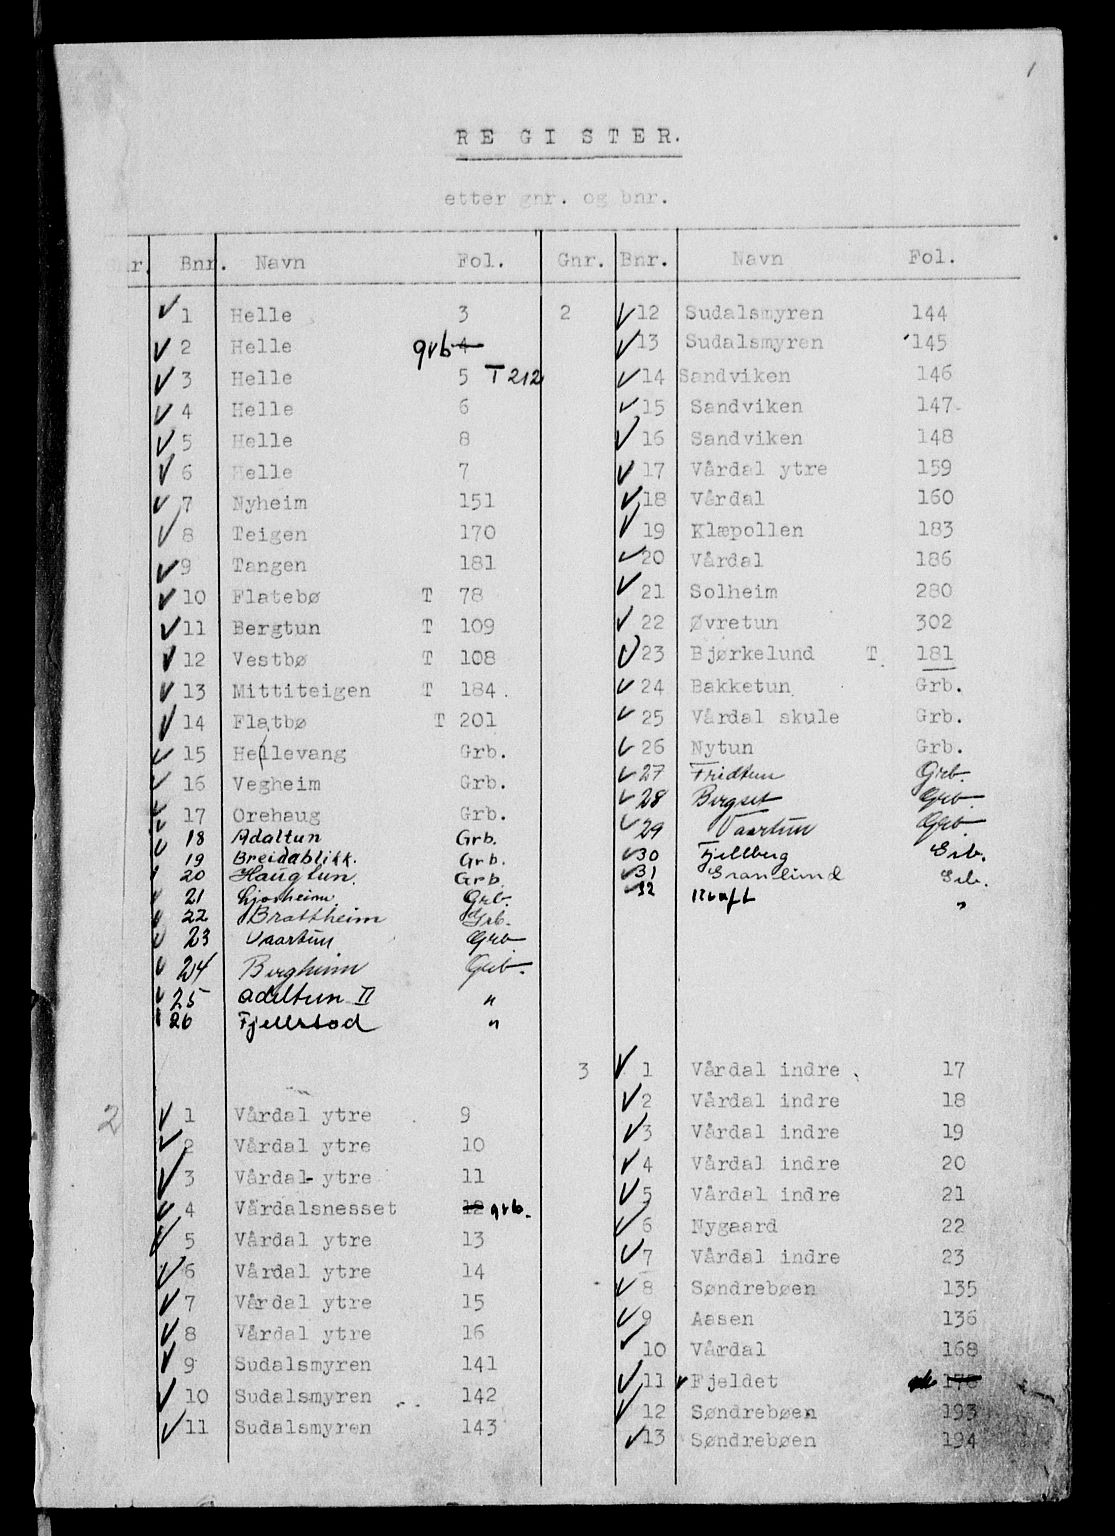 1
REGISTER.
etter gnr. og bnr.
Bnr. Navn Fol.
1 Helle 3
2 Helle grb 4
3 Helle 5 T 212
4 Helle 6
5 Helle 8
6 Helle 7
7 Nyheim 151
8 Teigen 170
9 Tangen 181
10 Flatebø T 78
11 Bergtun T 109
12 Vestbø T 108
13 Mittiteigen T 184
14 Flatbø T 201
15 Hellevang Grb.
16 Vegheim Grb.
17 Orehaug Grb.
18 Adaltun Grb.
19 Breidablikk. Grb.
20 Haugtun. Grb.
21 Grb.
22 Brattheim Grb.
23 Vaartun Grb
24 Bergheim Grb.
25 Adeltun II "
26 Fjellstad "
2 1 Vårdal ytre 9
2 Vårdal ytre 10
3 Vårdal ytre 11
4 Vårdalsnesset 12 grb.
5 Vårdal ytre 13
6 Vårdal ytre 14
7 Vårdal ytre 15
8 Vårdal ytre 16
9 Sudalsmyren 141
10 Sudalsmyren 142
11 Sudalsmyren 143
Gnr. Bnr. Navn Fol.
2 12 Sudalsmyren 144
13 Sudalsmyren 145
14 Sandviken 146
15 Sandviken 147
16 Sandviken 148
17 Vårdal ytre 159
18 Vårdal 160
19 Klæpollen 183
20 Vårdal 186
21 Solheim 280
22 Øvretun 302
23 Bjørkelund T 181
24 Bakketun Grb.
25 Vårdal skule Grb.
26 Nytun Grb.
27 Fridtun Grb.
28 Bergset Grb.
29 Vaartun Grb
30 Fjellberg Grb.
31 Granlund Grb.
32 "
3 1 Vårdal indre 17
2 Vårdal indre 18
3 Vårdal indre 19
4 Vårdal indre 20
5 Vårdal indre 21
6 Nygaard 22
7 Vårdal indre 23
8 Søndrebøen 135
9 Aasen 136
10 Vårdal 168
11 Fjeldet 178
12 Søndrebøen 193
13 Søndrebøen 194